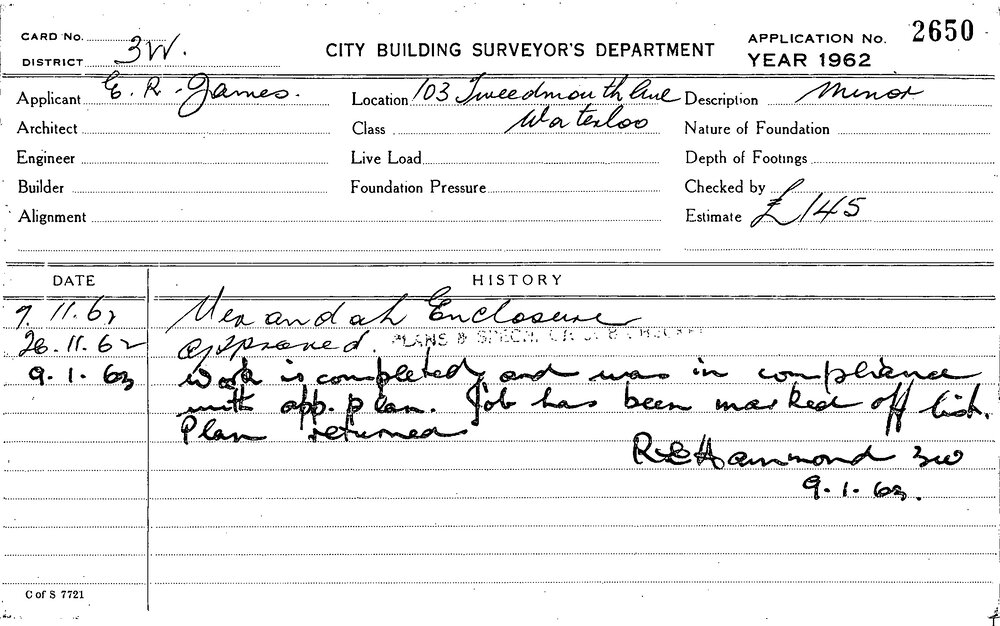 CARD No.
DISTRICT 3W.
CITY BUILDING SURVEYOR'S DEPARTMENT
APPLICATION No. 2650
YEAR 1962
Applicant E. R. James.
Location 103 Tweedmouth Ave
Description Minor
Architect
Class Waterloo
Nature of Foundation
Engineer
Live Load
Depth of Footings
Builder
Foundation Pressure
Checked by
Alignment
Estimate £145
DATE
HISTORY
7. 11. 62 Verandah Enclosure
26. 11. 62 approved. PLANS &
9. 1. 63 work is completed and was in compliance
with app. plan. Job has been marked off list.
Plan returned
R E Hammond 3W
9. 1. 63.
C of S 7721